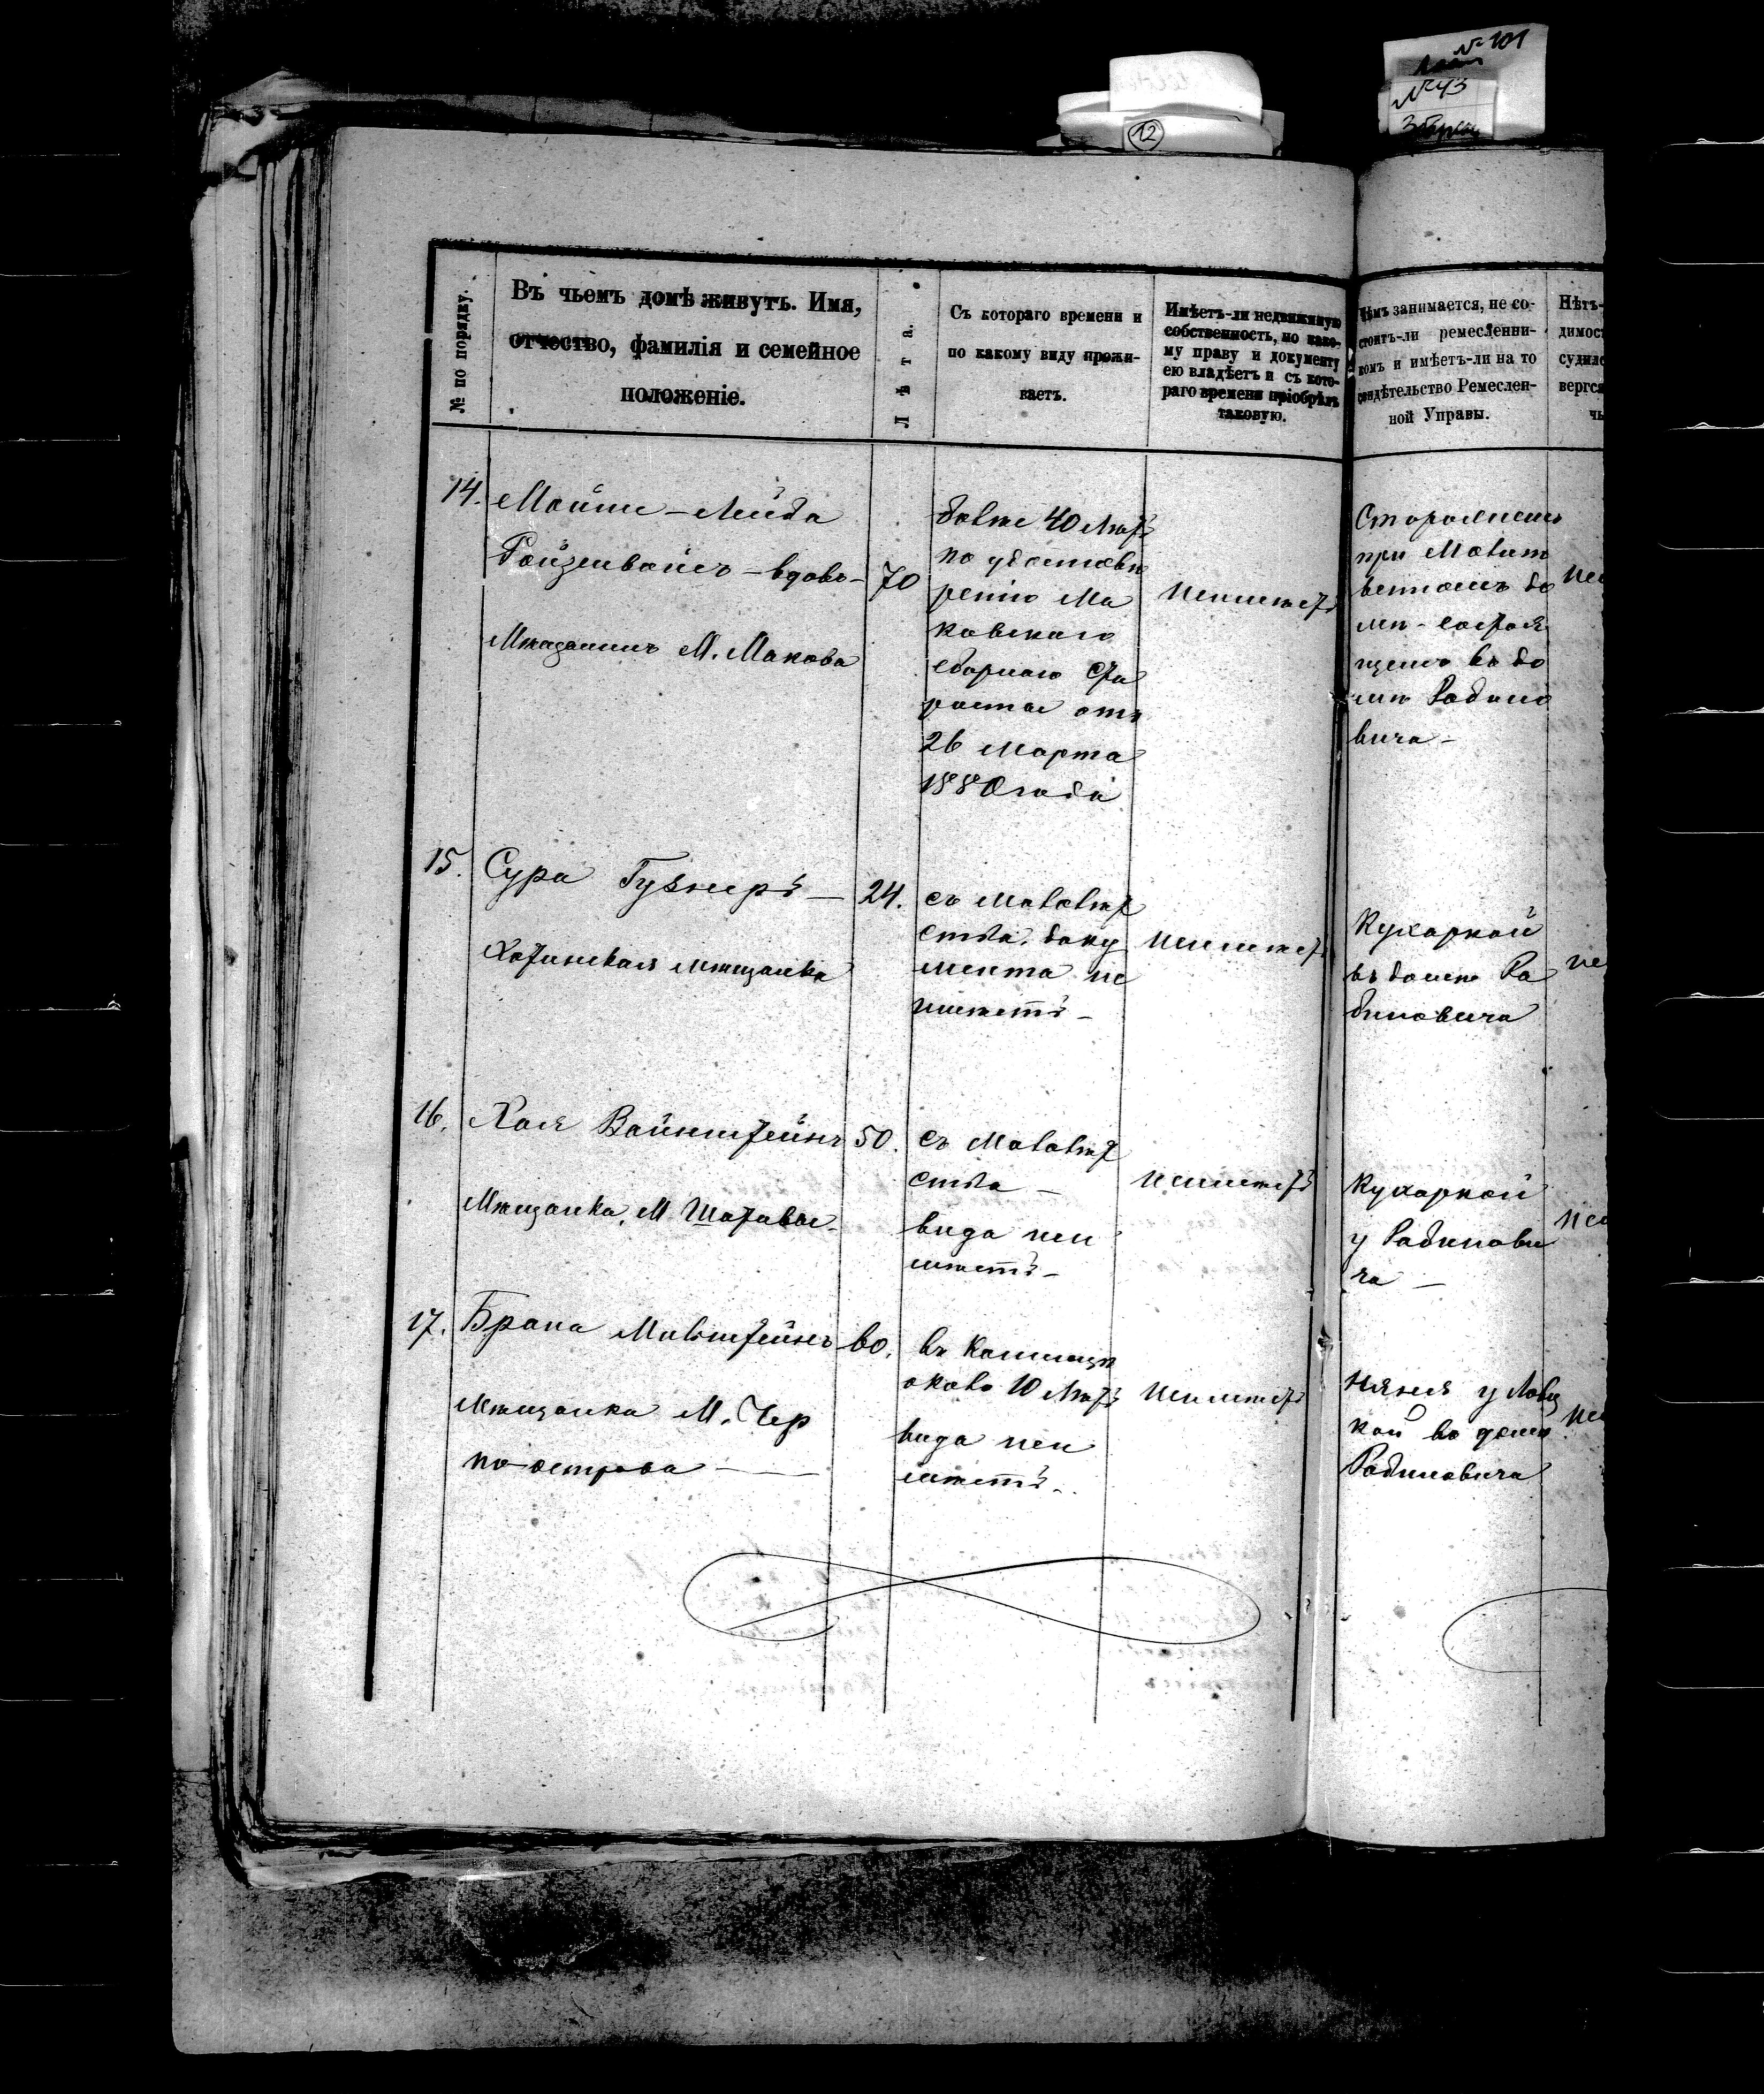 № 101
№ 43
12
№ по порядку.
Въ чьемъ домѣ живутъ. Имя,
отчество, фамилія и семейное
положеніе.
Лѣта.
Съ котораго времени и
по какому виду прожи-
ваетъ.
Имѣетъ-ли недвижимую
собственность, по како-
му праву и документу
ею владѣетъ и съ кото-
раго времени пріобрѣлъ
таковую.
Чѣмъ занимается, не со-
стоитъ-ли ремесленни-
комъ и имѣетъ-ли на то
свидѣтельство Ремеслен-
ной Управы.
Нѣтъ-
димос
судил
вергся
чь
14.
Мойше-Лейба
Ройзенвайсъ - вдовъ -
Мѣщанинъ М. Макова
70
болѣе 40 лѣтъ
по удостовѣ
ренію Ма
ковскаго
сборнаго Ста
росты отъ
26 Марта
1880 года
неимѣетъ
Сторожемъ
при Молит
венномъ до
мѣ - состоя
щемъ въ до
мѣ Рабино
вича -
не
15.
Сура Гузнеръ -
Хотинская мѣщанка
24.
съ малолѣт
ства. доку
мента не
имѣетъ -
неимѣетъ
Кухаркой
въ домѣ Ра
биновича
не
16.
Хая Вайнштейнъ
Мѣщанка, М. Шатавы -
50.
съ Малолѣт
ства -
вида неи
мѣетъ -
неимѣетъ
Кухаркой
у Рабинови
ча -
не
17.
Брана Мильштейнъ
Мѣщанка М. Чер
но-острова -
60.
въ Каменцѣ
около 10 лѣтъ
вида неи
мѣетъ -
неимѣетъ
няня у
кой во домѣ
Рабиновича
не